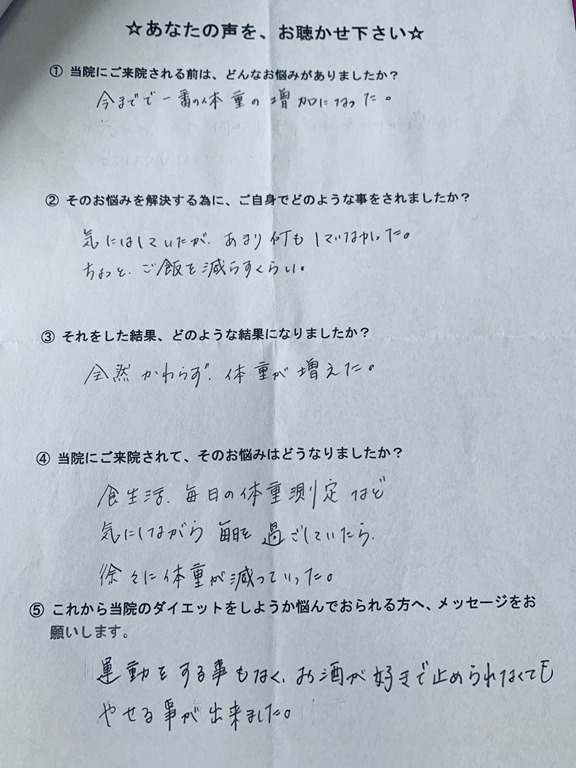 ☆あなたの声を、お聴かせ下さい☆
① 当院にご来院される前は、どんなお悩みがありましたか？
今までで一番の体重の増加になった。
② そのお悩みを解決する為に、ご自身でどのような事をされましたか？
気にはしていたが、あまり何もしていなかった。
ちょっと、ご飯を減らすくらい。
③ それをした結果、どのような結果になりましたか？
全然かわらず、体重が増えた。
④ 当院にご来院されて、そのお悩みはどうなりましたか？
食生活、毎日の体重測定など
気にしながら毎日を過ごしていたら、
徐々に体重が減っていった。
⑤ これから当院のダイエットをしようか悩んでおられる方へ、メッセージをお
願いします。
運動をする事もなく、お酒が好きで止められなくても
やせる事が出来ました。